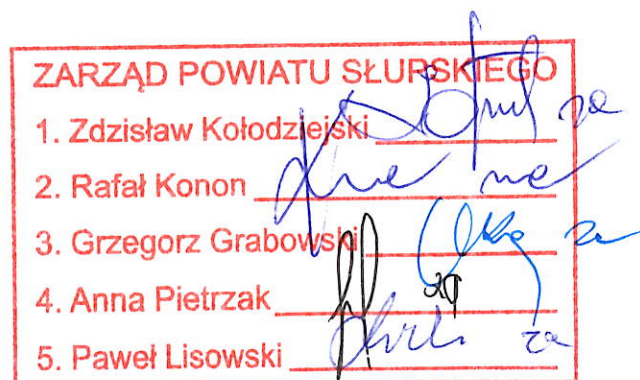 ZARZĄD POWIATU SŁUPSKIEGO
1. Zdzisław Kołodziejski za
2. Rafał Konon
3. Grzegorz Grabowski za
4. Anna Pietrzak
5. Paweł Lisowski za